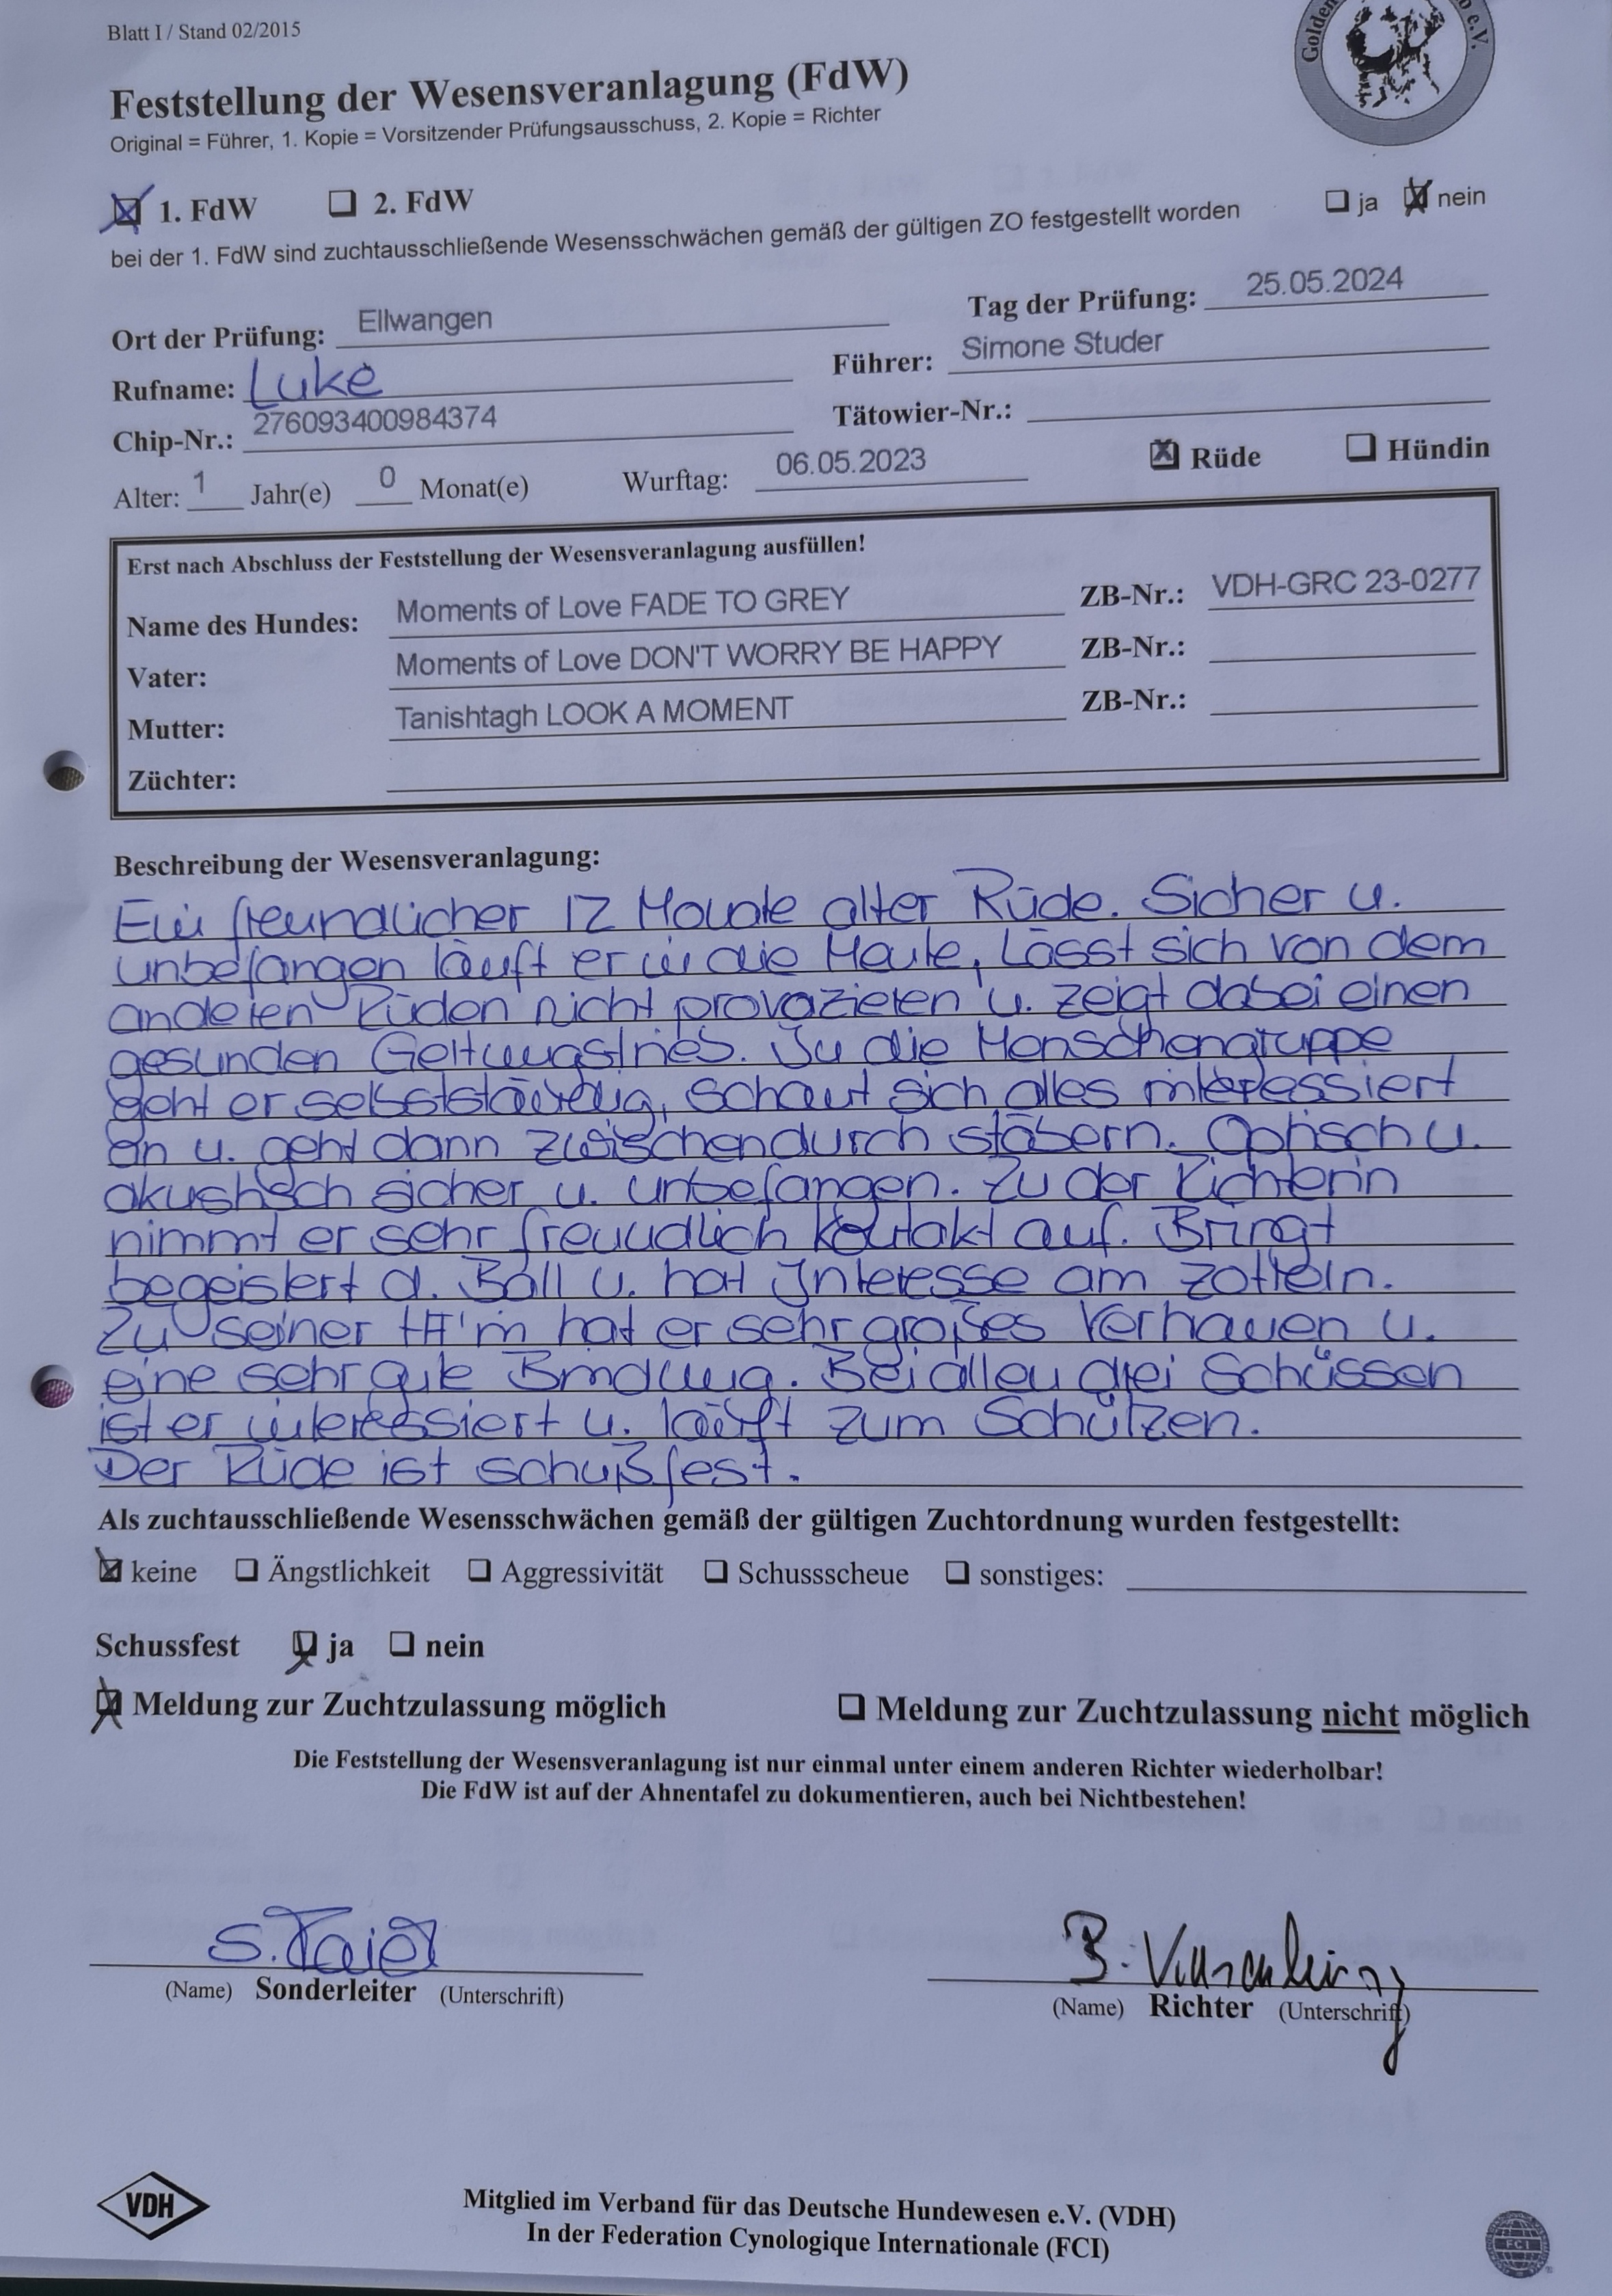 Blatt I / Stand 02/2015
Golden e.V.
Feststellung der Wesensveranlagung (FdW)
Original = Führer, 1. Kopie = Vorsitzender Prüfungsausschuss, 2. Kopie = Richter
☒ 1. FdW ☐ 2. FdW
bei der 1. FdW sind zuchtausschließende Wesensschwächen gemäß der gültigen ZO festgestellt worden ☐ ja ☒ nein
Ort der Prüfung: Ellwangen Tag der Prüfung: 25.05.2024
Rufname: Luke Führer: Simone Studer
Chip-Nr.: 276093400984374 Tätowier-Nr.:
Alter: 1 Jahr(e) 0 Monat(e) Wurftag: 06.05.2023 ☒ Rüde ☐ Hündin
Erst nach Abschluss der Feststellung der Wesensveranlagung ausfüllen!
Name des Hundes: Moments of Love FADE TO GREY ZB-Nr.: VDH-GRC 23-0277
Vater: Moments of Love DON'T WORRY BE HAPPY ZB-Nr.:
Mutter: Tanishtagh LOOK A MOMENT ZB-Nr.:
Züchter:
Beschreibung der Wesensveranlagung:
Ein freundlicher 12 Monate alter Rüde. Sicher u.
unbefangen läuft er in die Meute, Lässt sich von dem
anderen Rüden nicht provozieren u. zeigt dabei einen
gesunden Geltungstrieb. In die Menschengruppe
geht er selbstständig, schaut sich alles interessiert
an u. geht dann zwischendurch stöbern. Optisch u.
akustisch sicher u. unbefangen. Zu der Richterin
nimmt er sehr freundlich Kontakt auf. Bringt
begeistert d. Ball u. hat Interesse am Zotteln.
Zu seiner HF'in hat er sehr großes Vertrauen u.
eine sehr gute Bindung. Bei allen drei Schüssen
ist er interessiert u. läuft zum Schützen.
Der Rüde ist schußfest.
Als zuchtausschließende Wesensschwächen gemäß der gültigen Zuchtordnung wurden festgestellt:
☒ keine ☐ Ängstlichkeit ☐ Aggressivität ☐ Schussscheue ☐ sonstiges:
Schussfest ☒ ja ☐ nein
☒ Meldung zur Zuchtzulassung möglich ☐ Meldung zur Zuchtzulassung nicht möglich
Die Feststellung der Wesensveranlagung ist nur einmal unter einem anderen Richter wiederholbar!
Die FdW ist auf der Ahnentafel zu dokumentieren, auch bei Nichtbestehen!
S. B.
(Name) Sonderleiter (Unterschrift) (Name) Richter (Unterschrift)
VDH
Mitglied im Verband für das Deutsche Hundewesen e.V. (VDH)
In der Federation Cynologique Internationale (FCI)
FCI